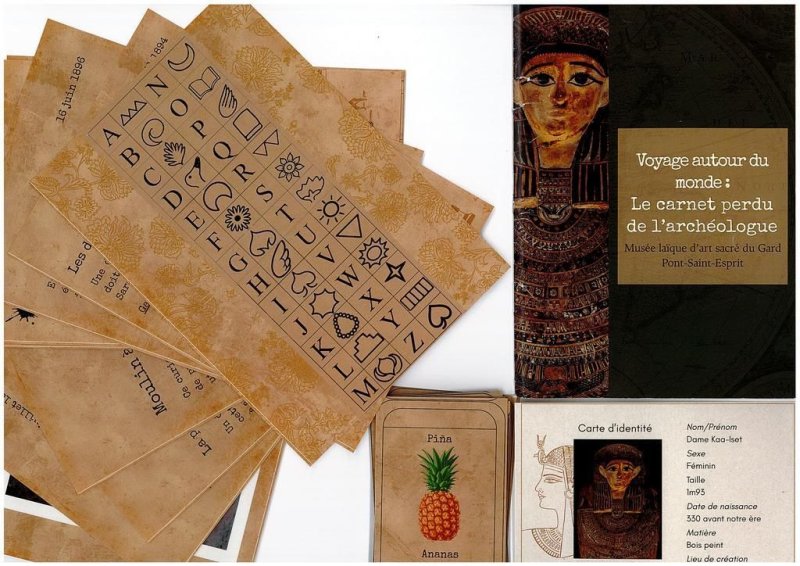 16 juin 1896
1894
A N
B O
C P
D Q
E R
F S
G T
H U
I V
J W
K X
L Y
M Z
Les d
Une
doit
Sar
Moulin à
La p
Voyage autour du
monde :
Le carnet perdu
de l'archéologue
Musée laïque d'art sacré du Gard
Pont-Saint-Esprit
Piña
Ananas
Carte d'identité
Nom/Prénom
Dame Kaa-Iset
Sexe
Féminin
Taille
1m93
Date de naissance
330 avant notre ère
Matière
Bois peint
Lieu de création